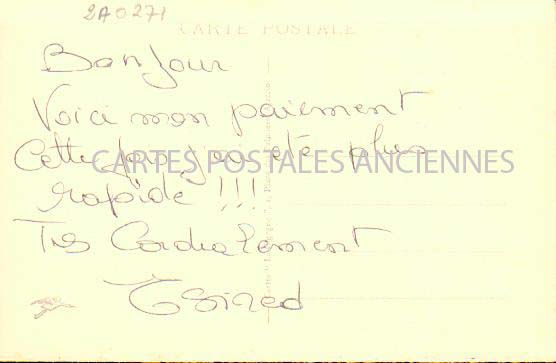 2A0271
CARTE POSTALE
Bonjour
Voici mon paiement
Cette fois j'ai été plus
CARTES POSTALES ANCIENNES
rapide !!!
Très Cordialement